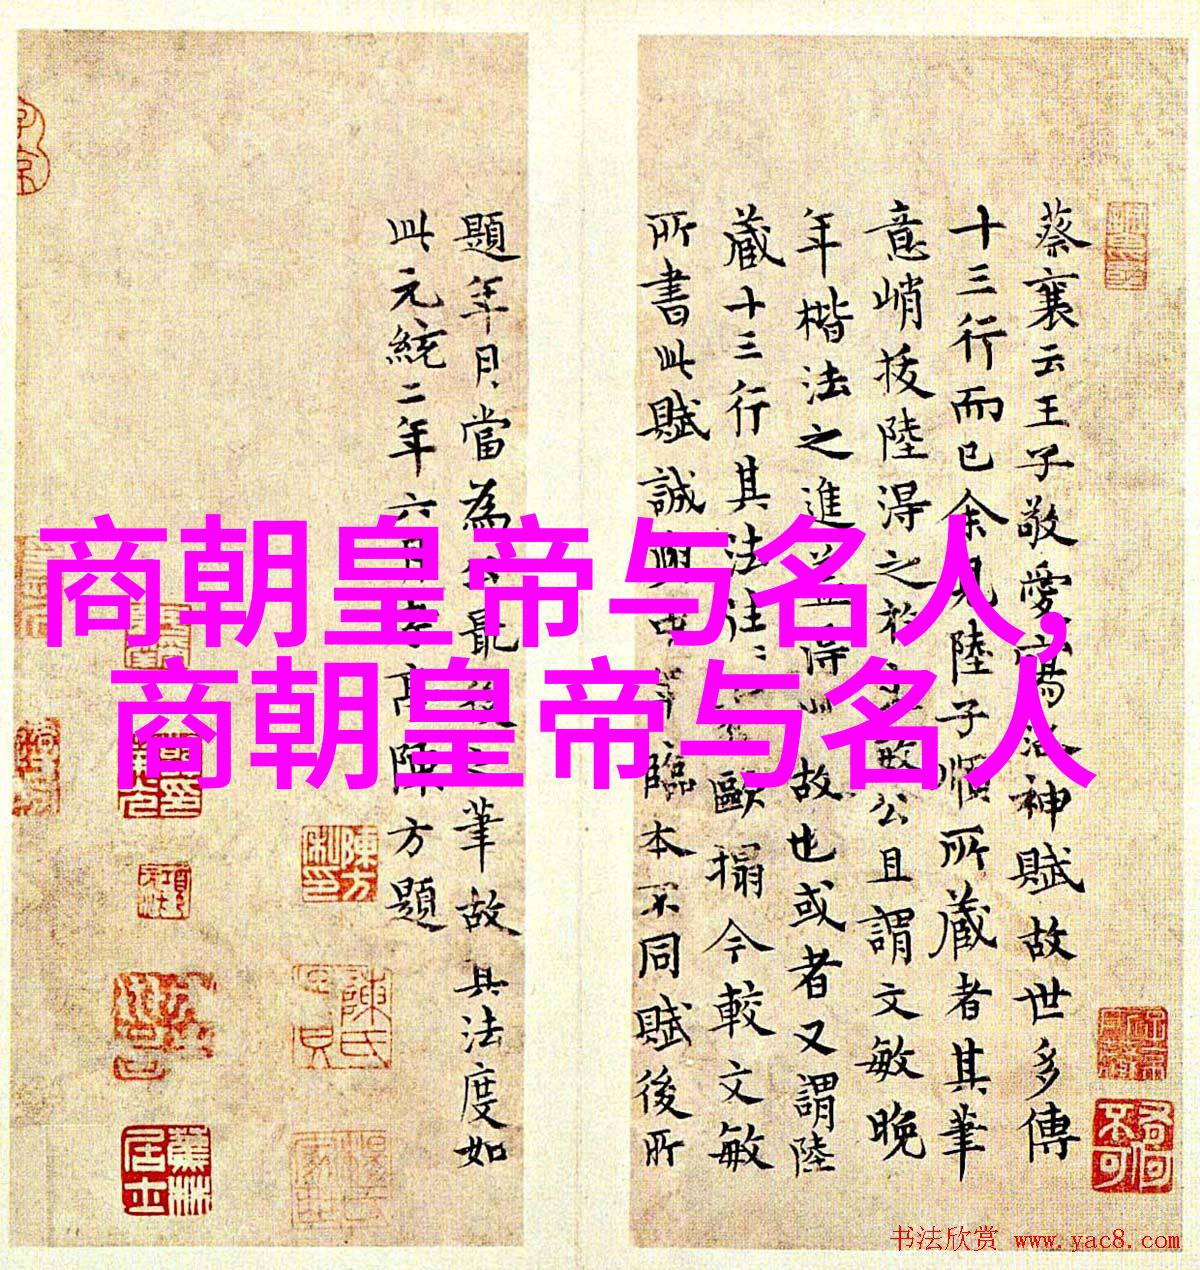 商朝皇帝与名人,
商朝皇帝与名人
蔡襄云王子敬愛寫洛神賦故世多傳
十三行而已余見陸子順所藏者其筆
意峭拔陸得之於敏公且謂文敏晚
年楷法之進益得此故也或者又謂陸
藏十三行其法往歐搨今較文敏
所書此賦誠與中年臨本不同賦後所
題年月當為公最後之筆故其法度如
此元統二年六月高陳方題
陳氏
蕉林居士
书法欣赏 www.yac8.com